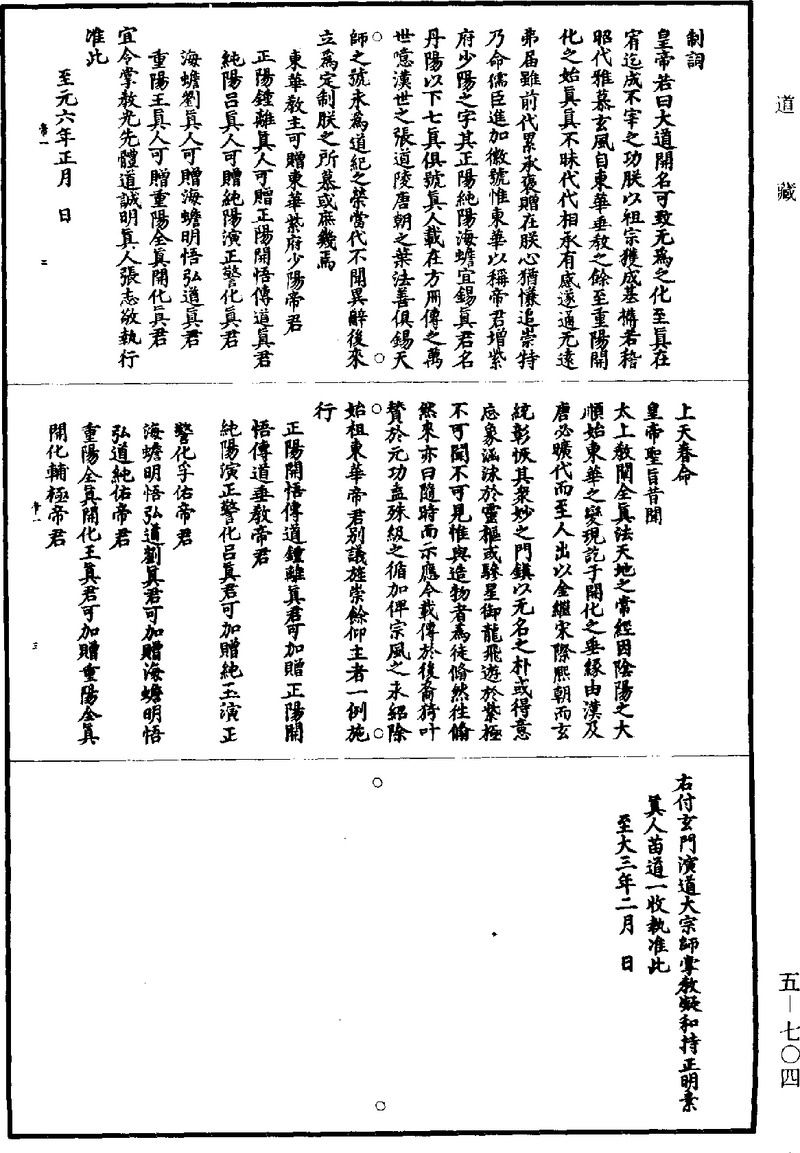 道藏
制詞
皇帝若曰大道開名可致无為之化至真在
宥迄成不宰之功朕以祖宗獲成基構若稽
昭代雅慕玄風自東華垂教之餘至重陽開
化之始真真不昧代代相承有感遂通无遠
弗届雖前代累承褒贈在朕心猶慊追崇特
乃命儒臣進加徽號惟東華以稱帝君增紫
府少陽之字其正陽純陽海蟾宜錫真君名
丹陽以下七真俱號真人載在方冊傳之萬
世噫漢世之張道陵唐朝之葉法善俱錫天
師之號永為道紀之榮當代不聞異辭後來
立為定制朕之所慕或庶幾焉
東華教主可贈東華紫府少陽帝君
正陽鍾離真人可贈正陽開悟傳道真君
純陽呂真人可贈純陽演正警化真君
海蟾劉真人可贈海蟾明悟弘道真君
重陽王真人可贈重陽全真開化真君
宜令掌教光先體道誠明真人張志敬執行
准此
至元六年正月 日
帝一 二
上天眷命
皇帝聖旨昔聞
太上敎闡全真法天地之常經因陰陽之大
順始東華之變現訖于開化之垂緣由漢及
唐必曠代而至人出以金繼宋際熙朝而玄
統彰恢其衆妙之門鎮以无名之朴或得意
忘象涵泳於靈樞或驂星御龍飛遊於紫極
不可聞不可見惟與造物者為徒翛然往翛
然來亦曰隨時而示應今載傳於後裔猗叶
贊於元功盍殊級之循加俾宗風之永紹除
始祖東華帝君別議旌崇餘仰主者一例施
行
正陽開悟傳道鍾離真君可加贈正陽開
悟傳道垂敎帝君
純陽演正警化呂真君可加贈純玉演正
警化孚佑帝君
海蟾明悟弘道劉真君可加贈海蟾明悟
弘道純佑帝君
重陽全真開化王真君可加贈重陽全真
開化輔極帝君
帝一 三
右付玄門演道大宗師掌教凝和持正明素
真人苗道一收執准此
至大三年二月 日
五-七〇四